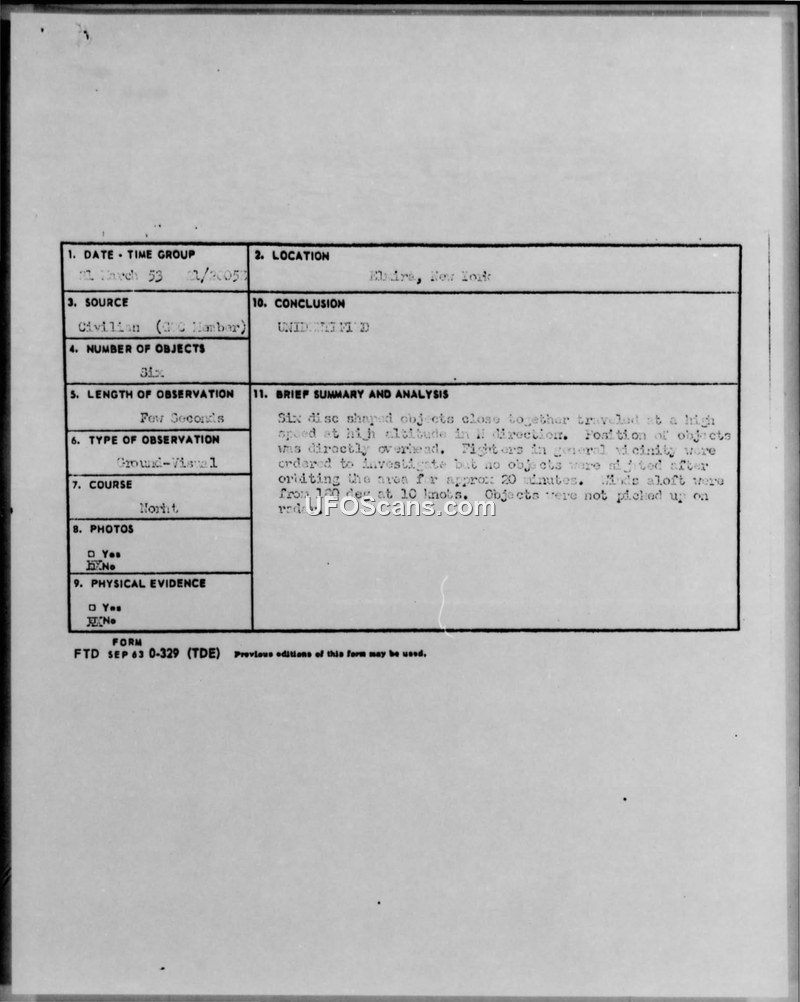 1. DATE - TIME GROUP
21 March 53 21/2005Z
2. LOCATION
Elmira, New York
3. SOURCE
Civilian (GOC Member)
10. CONCLUSION
UNIDENTIFIED
4. NUMBER OF OBJECTS
Six
5. LENGTH OF OBSERVATION
Few Seconds
11. BRIEF SUMMARY AND ANALYSIS
Six disc shaped objects close together traveled at a high
speed at high altitude in N direction. Position of objects
was directly overhead. Fighters in general vicinity were
ordered to investigate but no objects were sighted after
orbiting the area for approx 20 minutes. Winds aloft were
from deg at 10 knots. Objects were not picked up on
radar.
6. TYPE OF OBSERVATION
Ground-Visual
7. COURSE
Norht
8. PHOTOS
□ Yes
XX No
9. PHYSICAL EVIDENCE
□ Yes
XX No
FORM
FTD SEP 63 0-329 (TDE) Previous editions of this form may be used.
UFOScans.com